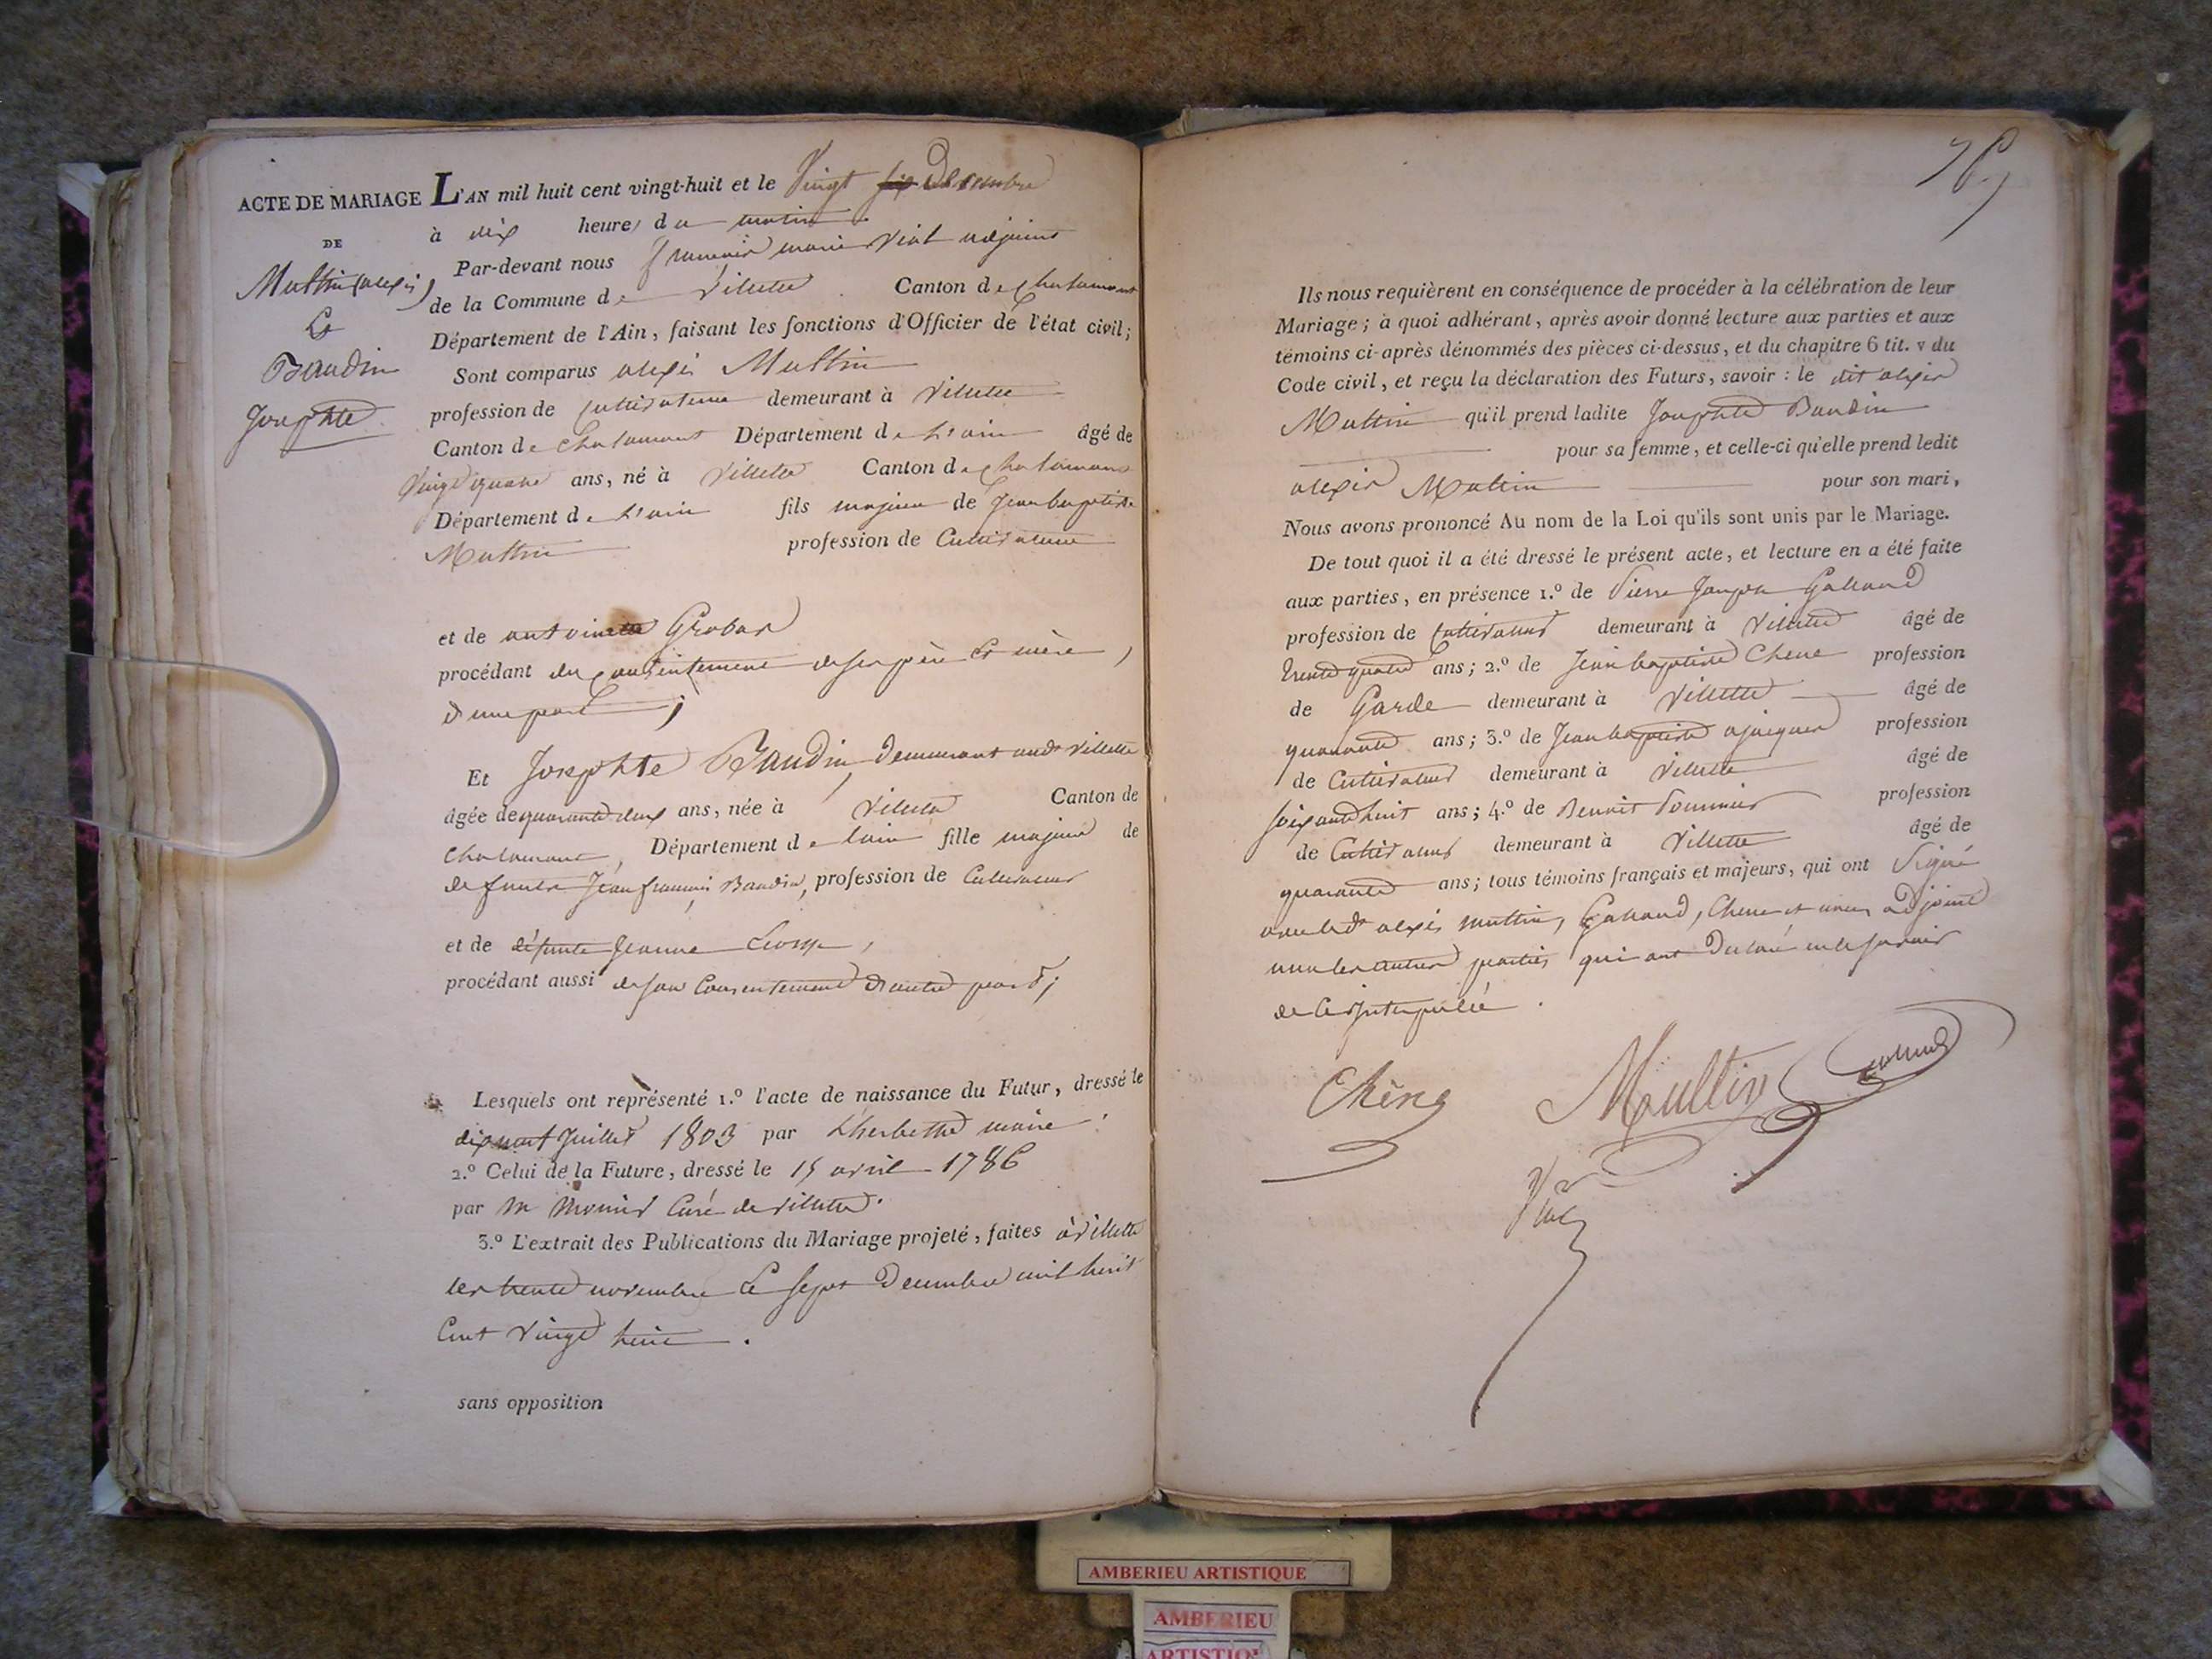 ACTE DE MARIAGE L'AN mil huit cent vingt-huit et le Vingt six Decembre
DE
Multin (alexis)
Et
Baudin
Josephte
à dix heures du matin
Par-devant nous francois marie Vial adjoint
de la Commune de Villette Canton de Chalamont
Département de l'Ain, faisant les fonctions d'Officier de l'état civil;
Sont comparus alexis Multin
profession de Cultivateur demeurant à Villette
Canton de Chalamont Département de L'ain âgé de
Vingt quatre ans, né à Villette Canton de Chalamont
Département de L'ain fils majeur de Jean baptiste
Multin profession de Cultivateur
et de antoinette Grobas
procédant du Consentement de ses père Et mère,
d'une part;
Et Josephte Baudin, demeurant aud. Villette
âgée de quarante deux ans, née à Villette Canton de
Chalamont, Département de lain fille majeure de
defunts Jean francois Baudin, profession de Cultivateur
et de défunte Jeanne
procédant aussi de son Consentement d'autre part;
Lesquels ont représenté 1.º l'acte de naissance du Futur, dressé le
Juillet 1803 par Lherbette maire
2.º Celui de la Future, dressé le 15 avril 1786
par m monier Curé de Villette.
3.º L'extrait des Publications du Mariage projeté, faites à Villette
les trente novembre Et sept Decembre mil huit
Cent Vingt huit.
sans opposition
76
Ils nous requièrent en conséquence de procéder à la célébration de leur
Mariage; à quoi adhérant, après avoir donné lecture aux parties et aux
témoins ci-après dénommés des pièces ci-dessus, et du chapitre 6 tit. v du
Code civil, et reçu la déclaration des Futurs, savoir : le dit alexis
Multin qu'il prend ladite Josephte Baudin
pour sa femme, et celle-ci qu'elle prend ledit
alexis Multin pour son mari,
Nous avons prononcé Au nom de la Loi qu'ils sont unis par le Mariage.
De tout quoi il a été dressé le présent acte, et lecture en a été faite
aux parties, en présence 1.º de Pierre Joseph Galland
profession de Cultivateur demeurant à Villette âgé de
trente quatre ans; 2.º de Jean baptiste Chene profession
de Garde demeurant à Villette âgé de
quarante ans; 3.º de Jean baptiste profession
de Cultivateur demeurant à Villette âgé de
soixante huit ans; 4.º de Benoit Pommier profession
de Cultivateur demeurant à Villette âgé de
quarante ans; tous témoins français et majeurs, qui ont Signé
avec led. alexis multin, Galland, Chene et nous adjoint
non les autres parties qui ont Declaré ne le savoir
de Ce Interpellé.
Chêne Moultin Galland
Vial
AMBERIEU ARTISTIQUE
AMBERIEU
ARTISTIQU